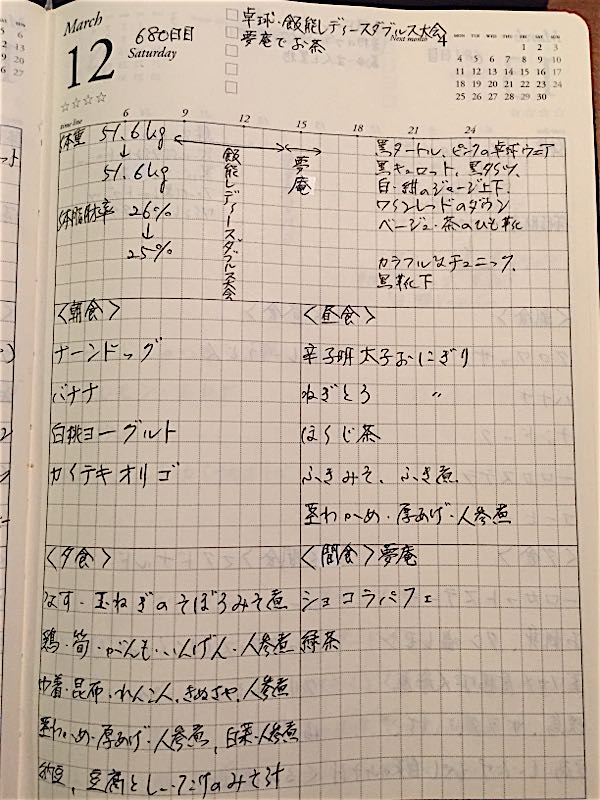 March
12
Saturday
680日目
卓球・飯能レディースダブルス大会
夢庵でお茶
Next month 4
MON TUE WED THU FRI SAT SUN
1 2 3
4 5 6 7 8 9 10
11 12 13 14 15 16 17
18 19 20 21 22 23 24
25 26 27 28 29 30
time line 6 9 12 15 18 21 24
体重 51.6kg
↓
51.6kg
体脂肪率 26%
↓
25%
飯能レディースダブルス大会
夢庵
黒タートル、ピンクの卓球ウェア
黒キュロット、黒タイツ、
白・紺のジャージ上下、
ワインレッドのダウン
ベージュ・茶のひも靴
カラフルなチュニック、
黒靴下
<朝食>
ナーンドッグ
バナナ
白桃ヨーグルト
カイテキオリゴ
<昼食>
辛子明太子おにぎり
ねぎとろ 〃
ほうじ茶
ふきみそ、ふき煮、
茎わかめ・厚あげ・人参煮
<夕食>
なす・玉ねぎのそぼろみそ煮
鶏・筍・がんも・いんげん・人参煮
巾着・昆布・れんこん・きぬさや・人参煮
茎わかめ・厚あげ・人参煮、白菜・人参煮
納豆、豆腐としいたけのみそ汁
<間食>夢庵
ショコラパフェ
緑茶